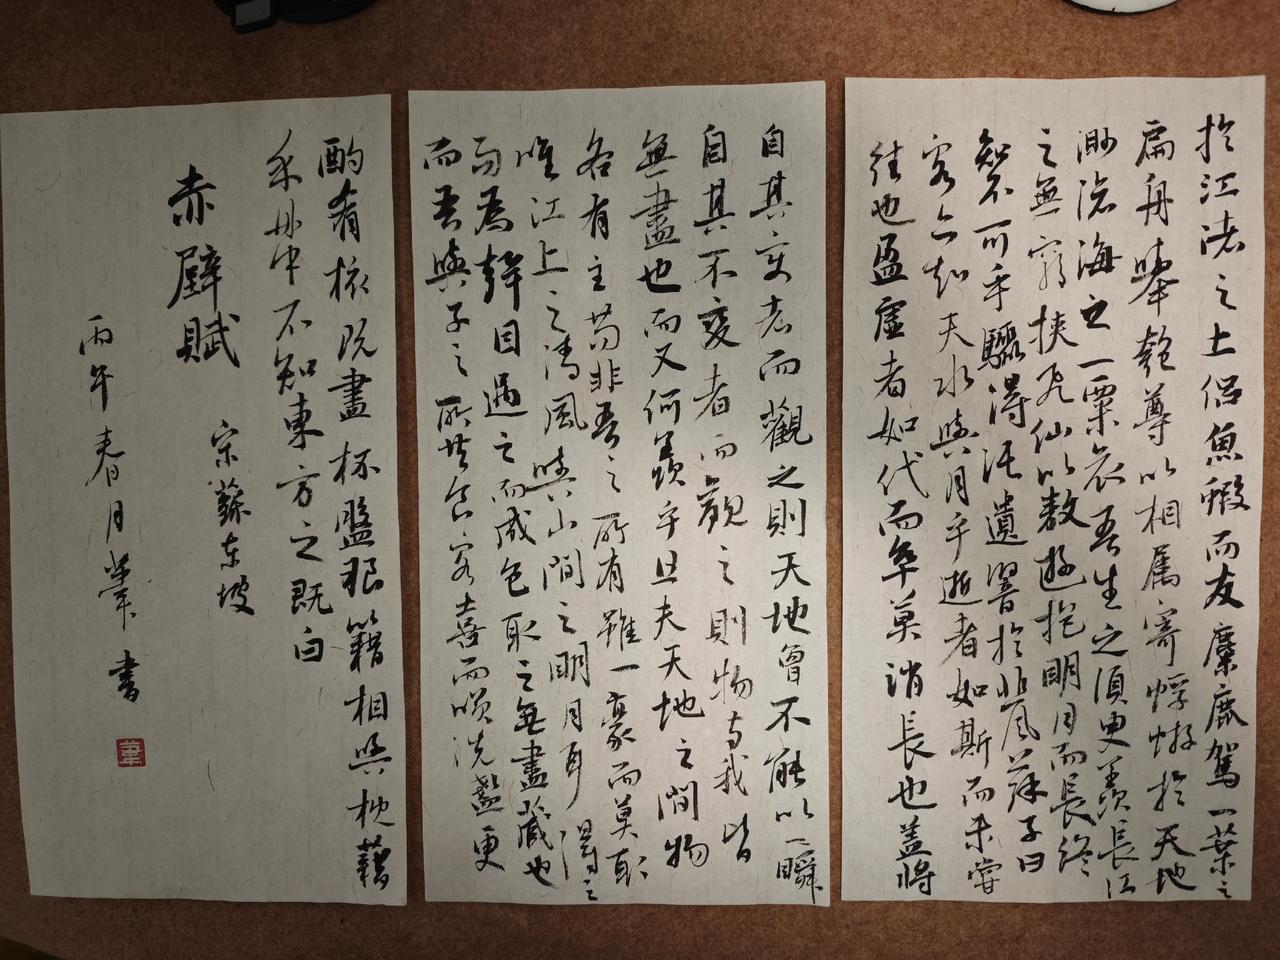 於江渚之上侶魚蝦而友麋鹿駕一葉之
扁舟舉匏尊以相屬寄蜉蝣於天地
渺滄海之一粟哀吾生之須臾羨長江
之無窮挾飛仙以敖遊抱明月而長終
知不可乎驟得託遺響於悲風蘇子曰
客亦知夫水與月乎逝者如斯而未嘗
往也盈虛者如代而卒莫消長也蓋將
自其變者而觀之則天地曾不能以一瞬
自其不變者而觀之則物與我皆
無盡也而又何羨乎且夫天地之間物
各有主苟非吾之所有雖一毫而莫取
唯江上之清風與山間之明月耳得之
而為聲目遇之而成色取之無盡藏也
而吾與子之所共食客喜而笑洗盞更
酌肴核既盡杯盤狼籍相與枕藉
乎舟中不知東方之既白
赤壁賦
宗蘇东坡
丙午春月葦書
葦